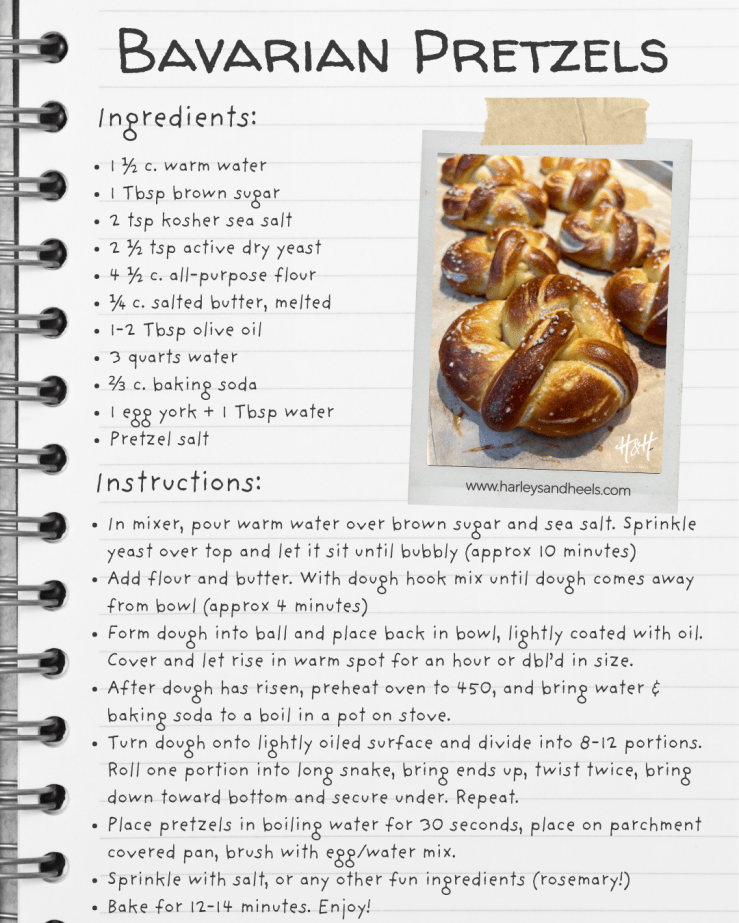 Bavarian Pretzels
Ingredients:
• 1 ½ c. warm water
• 1 Tbsp brown sugar
• 2 tsp kosher sea salt
• 2 ½ tsp active dry yeast
• 4 ½ c. all-purpose flour
• ¼ c. salted butter, melted
• 1-2 Tbsp olive oil
• 3 quarts water
• ⅔ c. baking soda
• 1 egg york + 1 Tbsp water
• Pretzel salt
H&H
www.harleysandheels.com
Instructions:
• In mixer, pour warm water over brown sugar and sea salt. Sprinkle
yeast over top and let it sit until bubbly (approx 10 minutes)
• Add flour and butter. With dough hook mix until dough comes away
from bowl (approx 4 minutes)
• Form dough into ball and place back in bowl, lightly coated with oil.
Cover and let rise in warm spot for an hour or dbl'd in size.
• After dough has risen, preheat oven to 450, and bring water &
baking soda to a boil in a pot on stove.
• Turn dough onto lightly oiled surface and divide into 8-12 portions.
Roll one portion into long snake, bring ends up, twist twice, bring
down toward bottom and secure under. Repeat.
• Place pretzels in boiling water for 30 seconds, place on parchment
covered pan, brush with egg/water mix.
• Sprinkle with salt, or any other fun ingredients (rosemary!)
• Bake for 12-14 minutes. Enjoy!